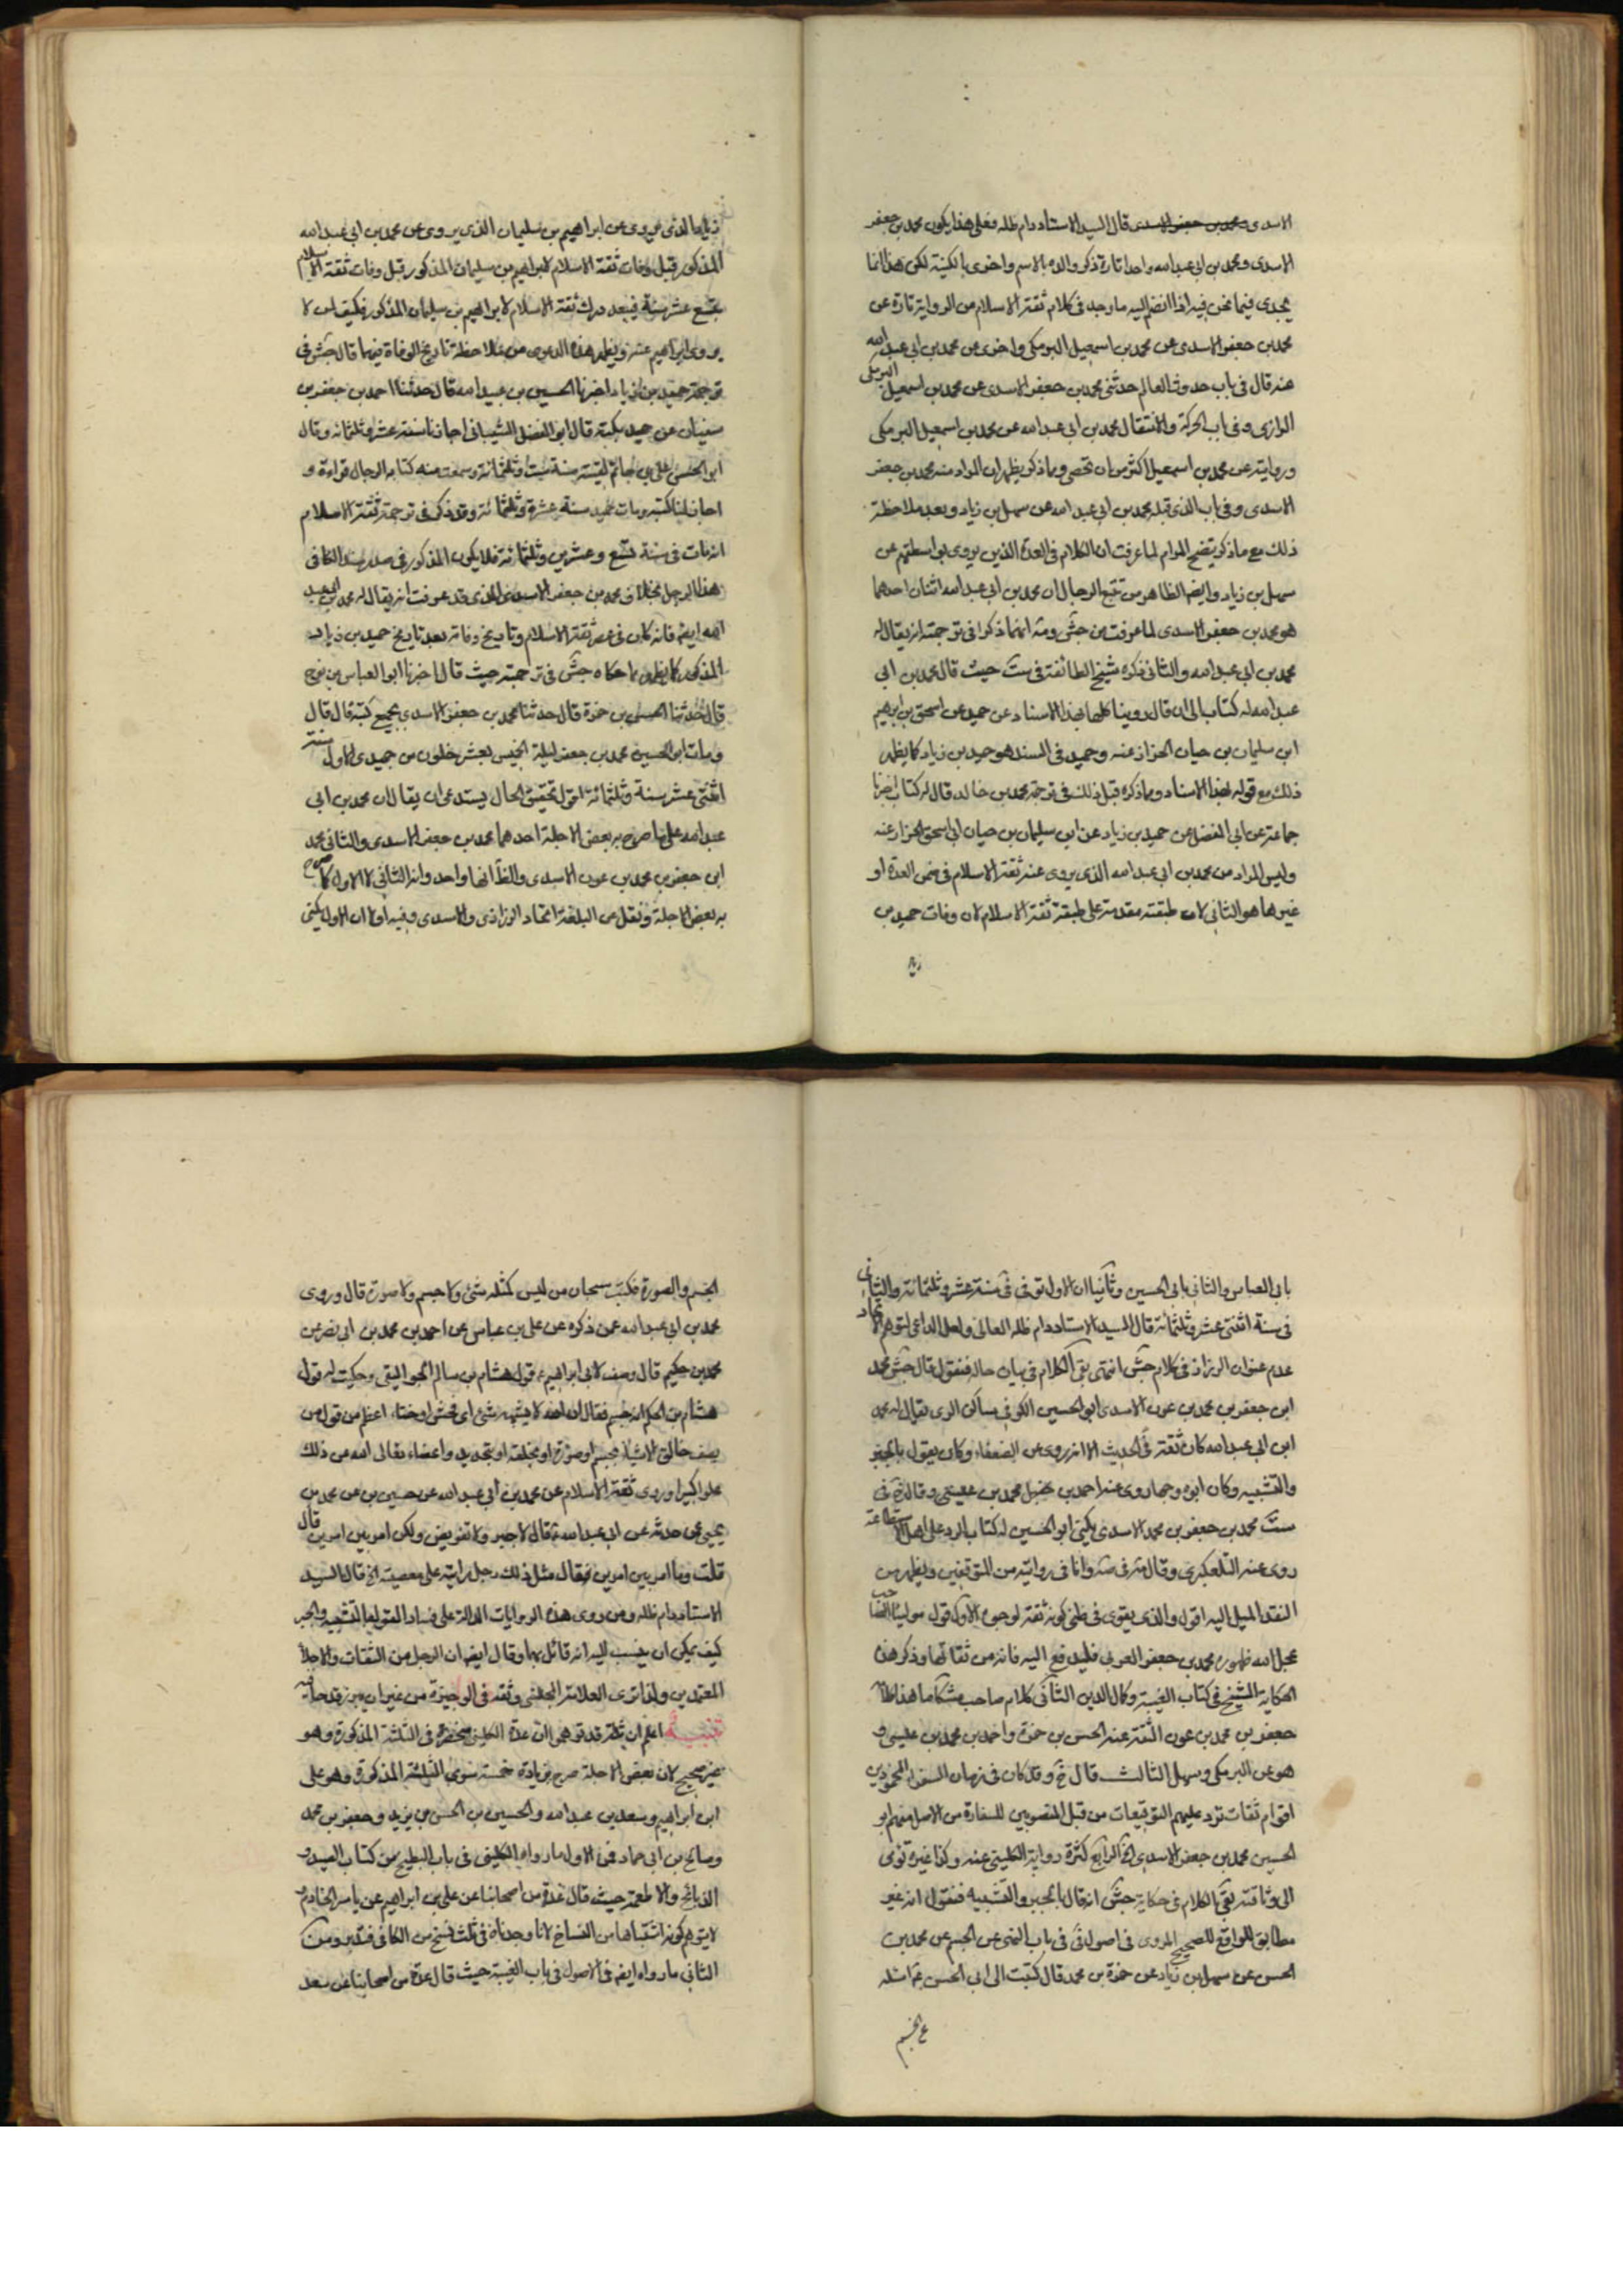 الاسدى محمد بن جعفر الاسدى قال السيد الاستاد دام ظله فعلى هذا يكون محمد بن جعفر
الاسدى ومحمد بن ابى عبد الله واحدا تارة ذكر والده بالاسم واخرى بالكنية لكن هذا انما
يجدى فيما نحن فيه اذا انضم اليه ما وجد فى كلام ثقة الاسلام من الرواية تارة عن
محمد بن جعفر الاسدى عن محمد بن اسمعيل البرمكى واخرى عن محمد بن ابى عبد الله
عنه قال فى باب حدوث العالم حدثنى محمد بن جعفر الاسدى عن محمد بن اسمعيل البرمكى
الرازى وفى باب الحركة والانتقال محمد بن ابى عبد الله عن محمد بن اسمعيل البرمكى
وروايته عن محمد بن اسمعيل اكثر من ان تحصى ومما ذكر يظهر ان المراد منه محمد بن جعفر
الاسدى وفى باب الذى قبله محمد بن ابى عبد الله عن سهل بن زياد وبعد ملاحظة
ذلك مع ما ذكر يتضح المرام لما عرفت ان الكلام فى العدة الذين يروى بواسطتهم عن
سهل بن زياد وايضا الظاهر من تتبع الرجال ان محمد بن ابى عبد الله اثنان احدهما
هو محمد بن جعفر الاسدى لما عرفت من جش ومه انهما ذكرا فى ترجمته انه يقال له
محمد بن ابى عبد الله والثانى ذكره شيخ الطائفة فى ست حيث قال محمد بن ابى
عبد الله له كتاب الى ان قال روينا كلها بهذا الاسناد عن حميد عن اسحق بن ابراهيم
ابن سليمان بن حيان الخزاز عنه وحميد فى السند هو حميد بن زياد كما يظهر
ذلك مع قوله بهذا الاسناد ومما ذكره قبل ذلك فى ترجمة محمد بن خالد قال له كتاب اخبرنا
جماعة عن ابى المفضل عن حميد بن زياد عن ابن سليمان بن حيان ابى اسحق الخزاز عنه
وليس المراد من محمد بن ابى عبد الله الذى يروى عنه ثقة الاسلام فى ضمن العدة او
غيرها هو الثانى لان طبقته مقدمة على طبقة ثقة الاسلام لان وفات حميد بن
زياد الذى يروى عن ابراهيم بن سليمان الذى يروى عن محمد بن ابى عبد الله
المذكور قبل وفات ثقة الاسلام لابراهيم بن سليمان المذكور قبل وفات ثقة الاسلام
بتسع عشر سنة فيبعد درك ثقة الاسلام لابراهيم بن سليمان المذكور فكيف لمن لا
يروى ابراهيم عنه ويظهر هذه الدعوى من ملاحظة تاريخ الوفاة فيهما قال جش فى
ترجمة حميد بن زياد اخبرنا الحسين بن عبيد الله قال حدثنا احمد بن جعفر بن
سفيان عن حميد بكتبه قال ابو المفضل الشيبانى اجازنا سنة عشر وثلثمائة وقال
ابو الحسن على بن حاتم لقيته سنة ست وثلثمائة وسمعت منه كتابه الرجال قراءة و
اجاز لنا كتبه ومات حميد سنة عشرة وثلثمائة وقد ذكر فى ترجمة ثقة الاسلام
انه مات فى سنة تسع وعشرين وثلثمائة فلا يكون المذكور فى صدر سند الكافى
هذا الرجل بخلاف محمد بن جعفر الاسدى الذى قد عرفت انه يقال له محمد بن ابى عبد
الله ايضا فانه كان فى عصر ثقة الاسلام وتاريخ وفاته بعد تاريخ حميد بن زياد
المذكور كما يظهر مما حكاه جش فى ترجمته حيث قال اخبرنا ابو العباس بن نوح
قال حدثنا الحسن بن حمزة قال حدثنا محمد بن جعفر الاسدى بجميع كتبه قال قال
ومات ابو الحسين محمد بن جعفر ليلة الخميس لعشر خلون من جميدى الاول سنة
اثنتى عشر سنة وثلثمائة اقول تحقيق الحال يستدعى ان يقال ان محمد بن ابى
عبد الله على ما صرح به بعض الاجلة احدهما محمد بن جعفر الاسدى والثانى محمد
ابن جعفر بن محمد بن عون الاسدى والظ انهما واحد وانه الثانى لا الاول كما صرح
به بعض الاجلة ونقل عن البلغة اتحاد الرزازى والاسدى وفيه اولا ان الاول يكنى
بابى العباس والثانى بابى الحسين وثانيا ان الاول توفى فى سنة عشر وثلثمائة والثانى
فى سنة اثنتى عشر وثلثمائة قال السيد الاستاد دام ظله العالى ولعل الداعى لتوهم الاتحاد
عدم عنوان الرزاز فى كلام جش انتهى بقى الكلام فى بيان حاله فنقول قال جش محمد
ابن جعفر بن محمد بن عون الاسدى ابو الحسين الكوفى ساكن الرى يقال له محمد
ابن ابى عبد الله كان ثقة صحيح الحديث الا انه روى عن الضعفاء وكان يقول بالجبر
والتشبيه وكان ابوه وجها روى عنه احمد بن محمد بن عيسى وقال فى
ست محمد بن جعفر بن محمد الاسدى يكنى ابو الحسين له كتاب الرد على اهل الاستطاعة
روى عنه التلعكبرى وقال مه فى صه وانا فى روايته من المتوقفين ويظهر من
النقد الميل اليه اقول والذى يقوى فى ظنى كونه ثقة لوجوه الاول قول مولينا
عجل الله ظهوره محمد بن جعفر العربى فليدفع اليه فانه من ثقاتنا وذكر هذه
الحكاية الشيخ فى كتاب الغيبة وكمال الدين الثانى كلام صاحب مشكا ما هذا لفظه
جعفر بن محمد بن عون الثقة عنه الحسن بن حمزة واحمد بن محمد بن عيسى و
هو عن البرمكى وسهل الثالث قال خ وقد كان فى زمان السفراء المحمودين
اقوام ثقات ترد عليهم التوقيعات من قبل المنصوبين للسفارة من الاصل منهم ابو
الحسين محمد بن جعفر الاسدى الخ الرابع كثرة رواية الكلينى عنه وكذا غيره
الى وثاقته بقى الكلام فى حكاية جش انه قال بالجبر والتشبيه فنقول انه غير
مطابق للواقع للصحيح المروى فى اصول فى فى باب النهى عن الجسم عن محمد بن
الحسن عن سهل بن زياد عن حمزة بن محمد قال كتبت الى ابى الحسن ع اسئله
عن الجسم
الجسم والصورة فكتب سبحان من ليس كمثله شئ ولا جسم ولا صورة قال وروى
محمد بن ابى عبد الله عمن ذكره عن على بن عباس عن احمد بن محمد بن ابى نصر عن
محمد بن حكيم قال وصفت لابى ابراهيم ع قول هشام بن سالم الجواليقى وحكيت له قول
هشام بن الحكم انه جسم فقال ان الله لا يشبهه شئ اى فحش او خناء اعظم من قول من
يصف خالق الاشياء بجسم او صورة او بخلقة او بتحديد واعضاء تعالى الله عن ذلك
علوا كبيرا وروى ثقة الاسلام عن محمد بن ابى عبد الله عن حسين بن عن محمد بن
يحيى عمن حدثه عن ابى عبد الله ع قال لا جبر ولا تفويض ولكن امر بين امرين قال
قلت وما امر بين امرين فقال مثل ذلك رجل رايته على معصية الخ قال السيد
الاستاد دام ظله ومن روى هذه الروايات الدالة على فساد القول بالتشبيه والجبر
كيف يمكن ان ينسب اليه انه قائل بهما وقال ايضا ان الرجل من الثقات والاجلاء
المعتمدين ولذا ترى العلامة المجلسى وثقه فى الوجيزة من غير ان يبرز قدحا فيه
تنبيه اعلم ان ثلة قد توهموا ان عدة الكلينى منحصرة فى الثلثة المذكورة وهو
غير صحيح لان بعض الاجلة صرح بزيادة خمسة سوى الثلثة المذكورة وهو على
ابن ابراهيم وسعد بن عبد الله والحسين بن الحسن بن يزيد وجعفر بن محمد
وصالح بن ابى حماد فمن الاول ما رواه الكلينى فى باب البطيخ من كتاب الصيد و
الذبائح والاطعمة حيث قال عدة من اصحابنا عن على بن ابراهيم عن ياسر الخادم و
لا يتوهم كونه اشتباها من النساخ لانا وجدناه فى ثلث نسخ من الكافى فتدبر ومن
الثانى ما رواه ايضا فى الاصول فى باب الغيبة حيث قال عدة من اصحابنا عن سعد